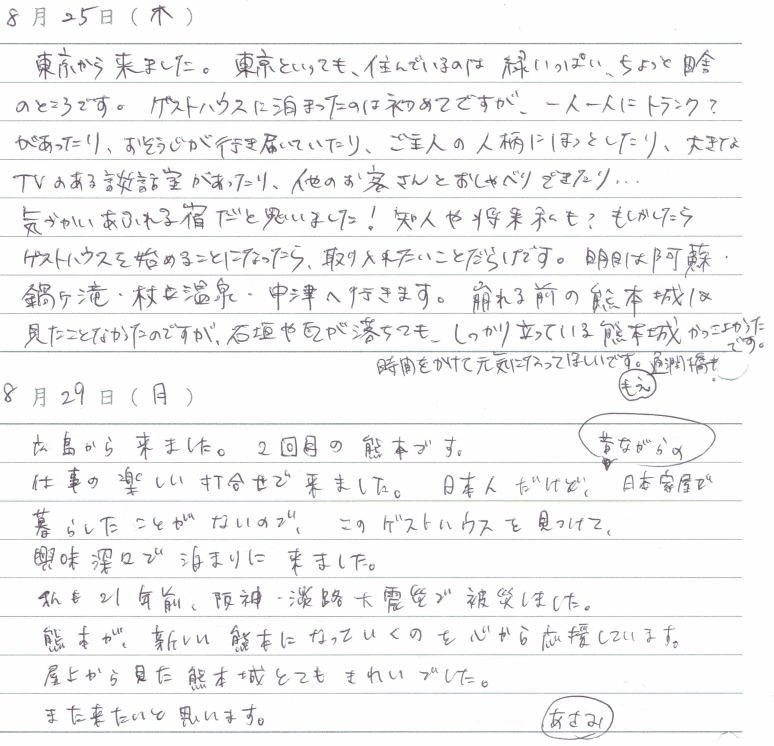 8月25日(木)
東京から来ました。東京といっても、住んでいるのは緑いっぱい、ちょっと田舎
のところです。ゲストハウスに泊まったのは初めてですが、一人一人にトランク?
があったり、おそうじが行き届いていたり、ご主人の人柄にほっとしたり、大きな
TVのある談話室があったり、他のお客さんとおしゃべりできたり…
気づかいあふれる宿だと思いました!知人や将来私も?もしかしたら
ゲストハウスを始めることになったら、取り入れたいことだらけです。明日は阿蘇・
鍋ヶ滝・杖立温泉・中津へ行きます。崩れる前の熊本城は
見たことなかったのですが、石垣や瓦が落ちても、しっかり立っている熊本城かっこよかった
です。
時間をかけて元気になってほしいです。通潤橋も!
もえ
8月29日(月)
広島から来ました。2回目の熊本です。
昔ながらの
仕事の楽しい打合せで来ました。日本人だけど、日本家屋で
暮らしたことがないので、このゲストハウスを見つけて、
興味深々で泊まりに来ました。
私も21年前、阪神・淡路大震災で被災しました。
熊本が、新しい熊本になっていくのを心から応援しています。
屋上から見た熊本城とてもきれいでした。
また来たいと思います。
あさみ